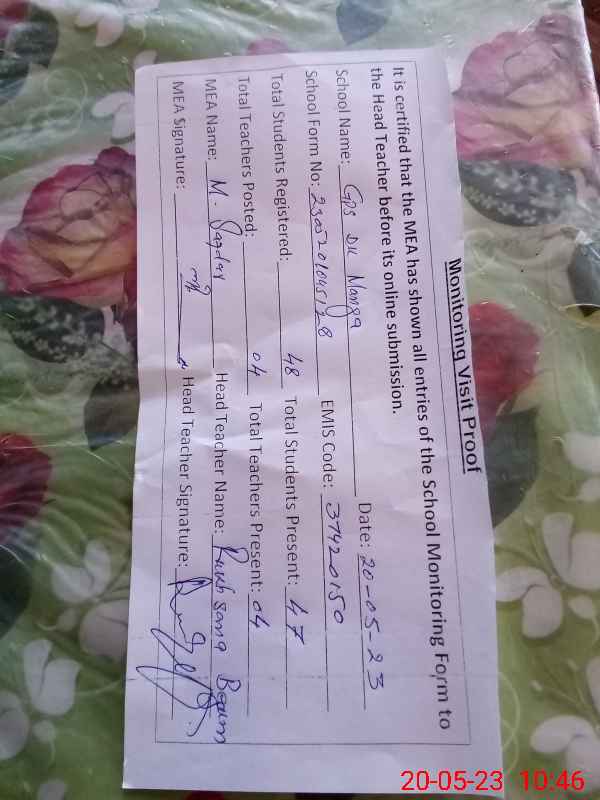 Monitoring Visit Proof
It is certified that the MEA has shown all entries of the School Monitoring Form to
the Head Teacher before its online submission.
School Name: GPS DK Manga Date: 20-05-23
School Form No: 2305201045128 EMIS Code: 37420150
Total Students Registered: 48 Total Students Present: 47
Total Teachers Posted: 04 Total Teachers Present: 04
MEA Name: M. Head Teacher Name: Rukhsana Begum
MEA Signature: Head Teacher Signature:
20-05-23 10:46